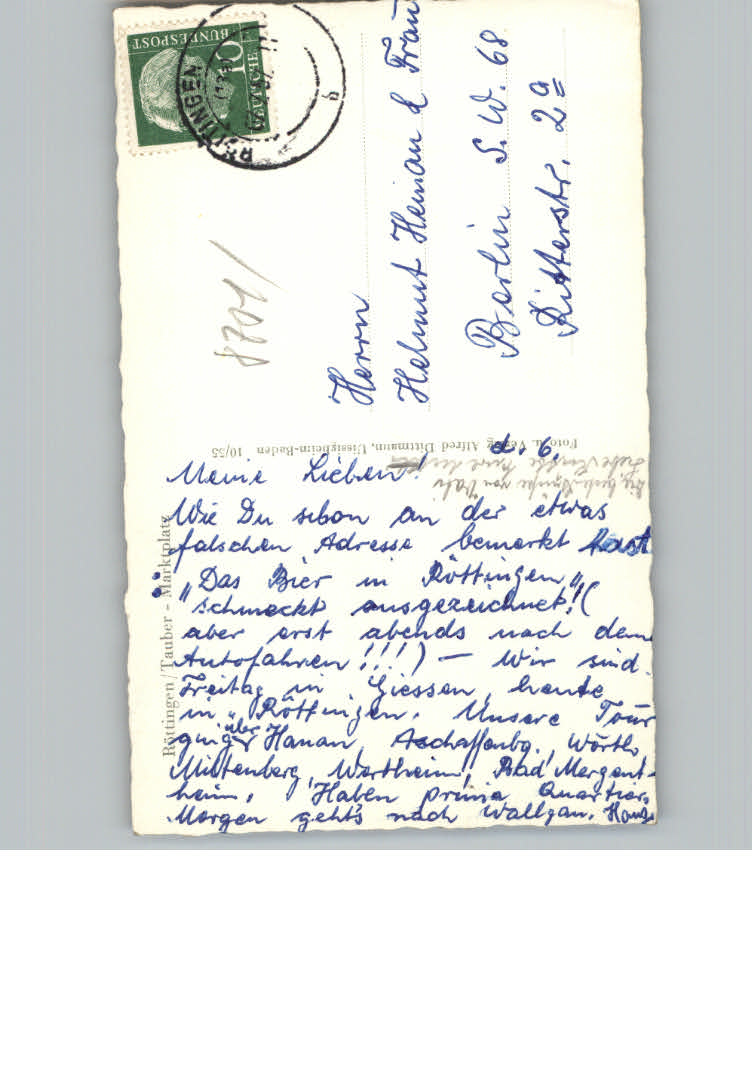 DEUTSCHE
BUNDESPOST
10
RÖTTINGEN
b
8701/
Herrn
Helmut Heinau & Frau
Berlin S. W. 68
Ritterstr. 2a
Foto u. Verlag Alfred Dittmann, Uissigheim-Baden 10/55
Röttingen/Tauber - Marktplatz
d. 6.
Meine Lieben!
Wie Du schon an der etwas
falschen Adresse bemerkt hast
"Das Bier in Röttingen"
schmeckt ausgezeichnet! (
aber erst abends nach dem
Autofahren!!!) — Wir sind
Freitag in Giessen, heute
in Röttingen. Unsere Tour
ging über Hanau, Aschaffenbg. Wörth,
Miltenberg, Wertheim, Bad Mergent-
heim. Haben prima Quartier.
Morgen geht's nach Wallgau.